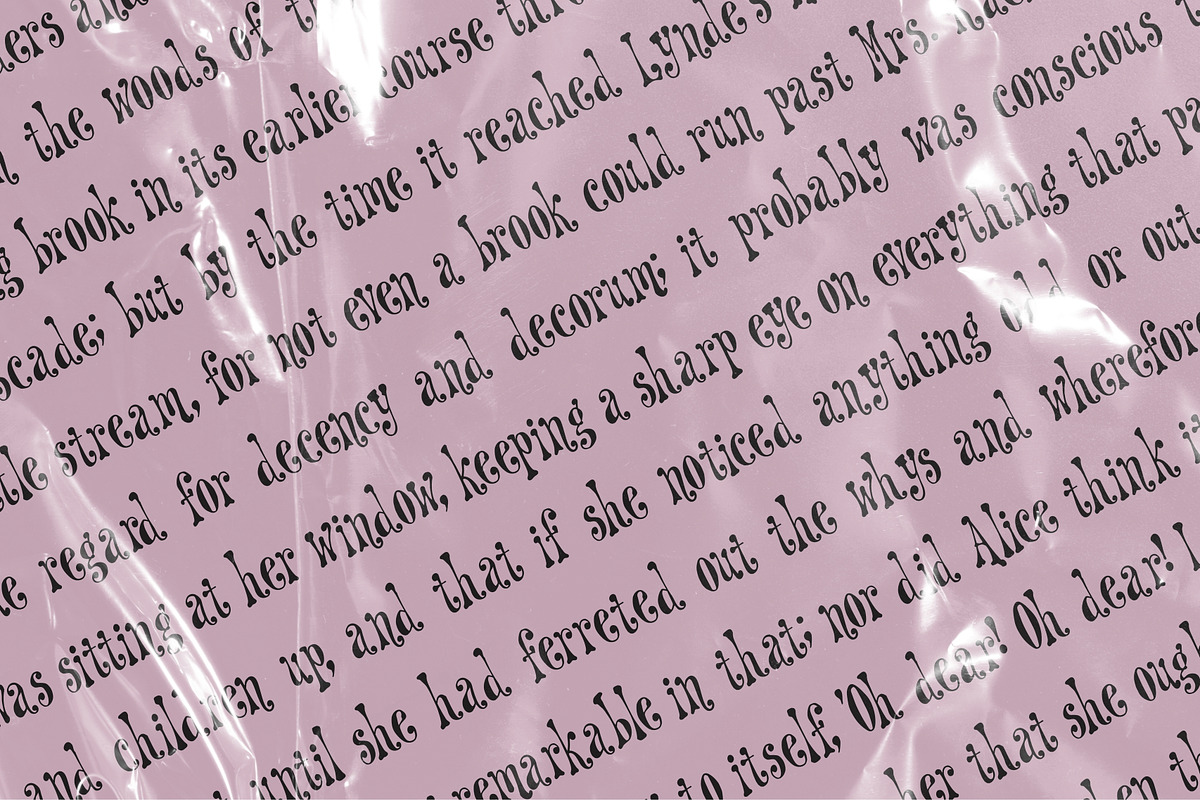 ders and
the woods of
g brook in its earlier course thro
scade; but by the time it reached Lynde's
ttle stream, for not even a brook could run past Mrs.
regard for decency and decorum; it probably was conscious
was sitting at her window, keeping a sharp eye on everything that pa
and children up, and that if she noticed anything odd or out
until she had ferreted out the whys and wherefor
remarkable in that; nor did Alice think it
to itself, 'Oh dear! Oh dear! I
her that she ough